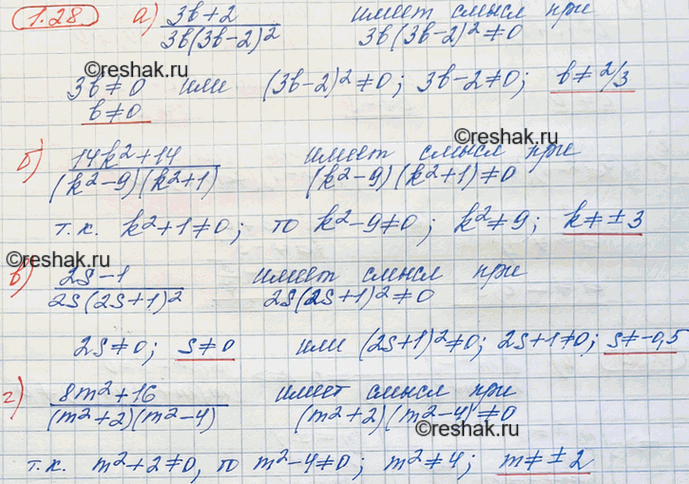 1.28 а) 3b+2 / 3b(3b-2)² имеет смысл при
3b(3b-2)²≠0
©reshak.ru
3b≠0 или (3b-2)²≠0; 3b-2≠0; b≠2/3
b≠0
©reshak.ru
б) 14k²+14 / (k²-9)(k²+1) имеет смысл при
(k²-9)(k²+1)≠0
©reshak.ru
т.к. k²+1≠0; то k²-9≠0; k²≠9; k≠±3
в) 2s-1 / 2s(2s+1)² имеет смысл при
2s(2s+1)²≠0
©reshak.ru
2s≠0; s≠0 или (2s+1)²≠0; 2s+1≠0; s≠-0,5
©reshak.ru
г) 8m²+16 / (m²+2)(m²-4) имеет смысл при
(m²+2)(m²-4)≠0
©reshak.ru
т.к. m²+2≠0, то m²-4≠0; m²≠4; m≠±2